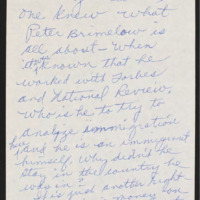 one knew what
Peter Brimelow is
all about - when
known that he
worked with Forbes
and National Review,
who is he to try to
analyze immigration
and he is an immigrant
himself. Why didn't he
stay in the country he
was in?
He's just another Right-
money you